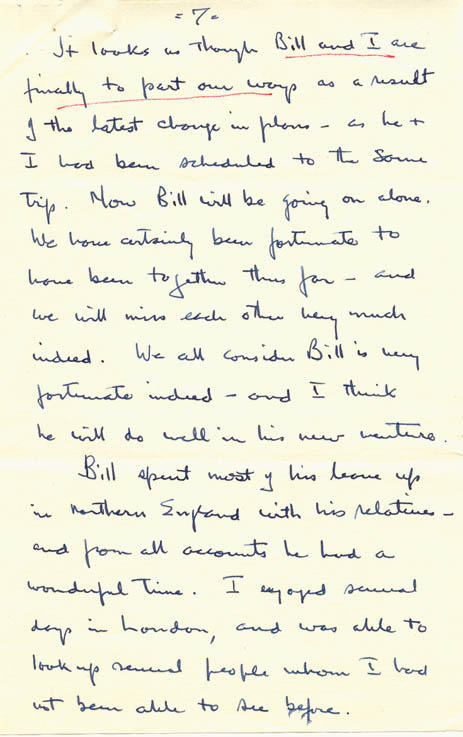 = 7 =
It looks as though Bill and I are
finally to part our ways as a result
of the latest change in plans - as he +
I had been scheduled to the same
trip. Now Bill will be going on alone.
We have certainly been fortunate to
have been together thus far - and
we will miss each other very much
indeed. We all consider Bill is very
fortunate indeed - and I think
he will do well in his new venture.
Bill spent most of his leave up
in northern England with his relatives -
and from all accounts he had a
wonderful time. I enjoyed several
days in London, and was able to
look up several people whom I had
not been able to see before.